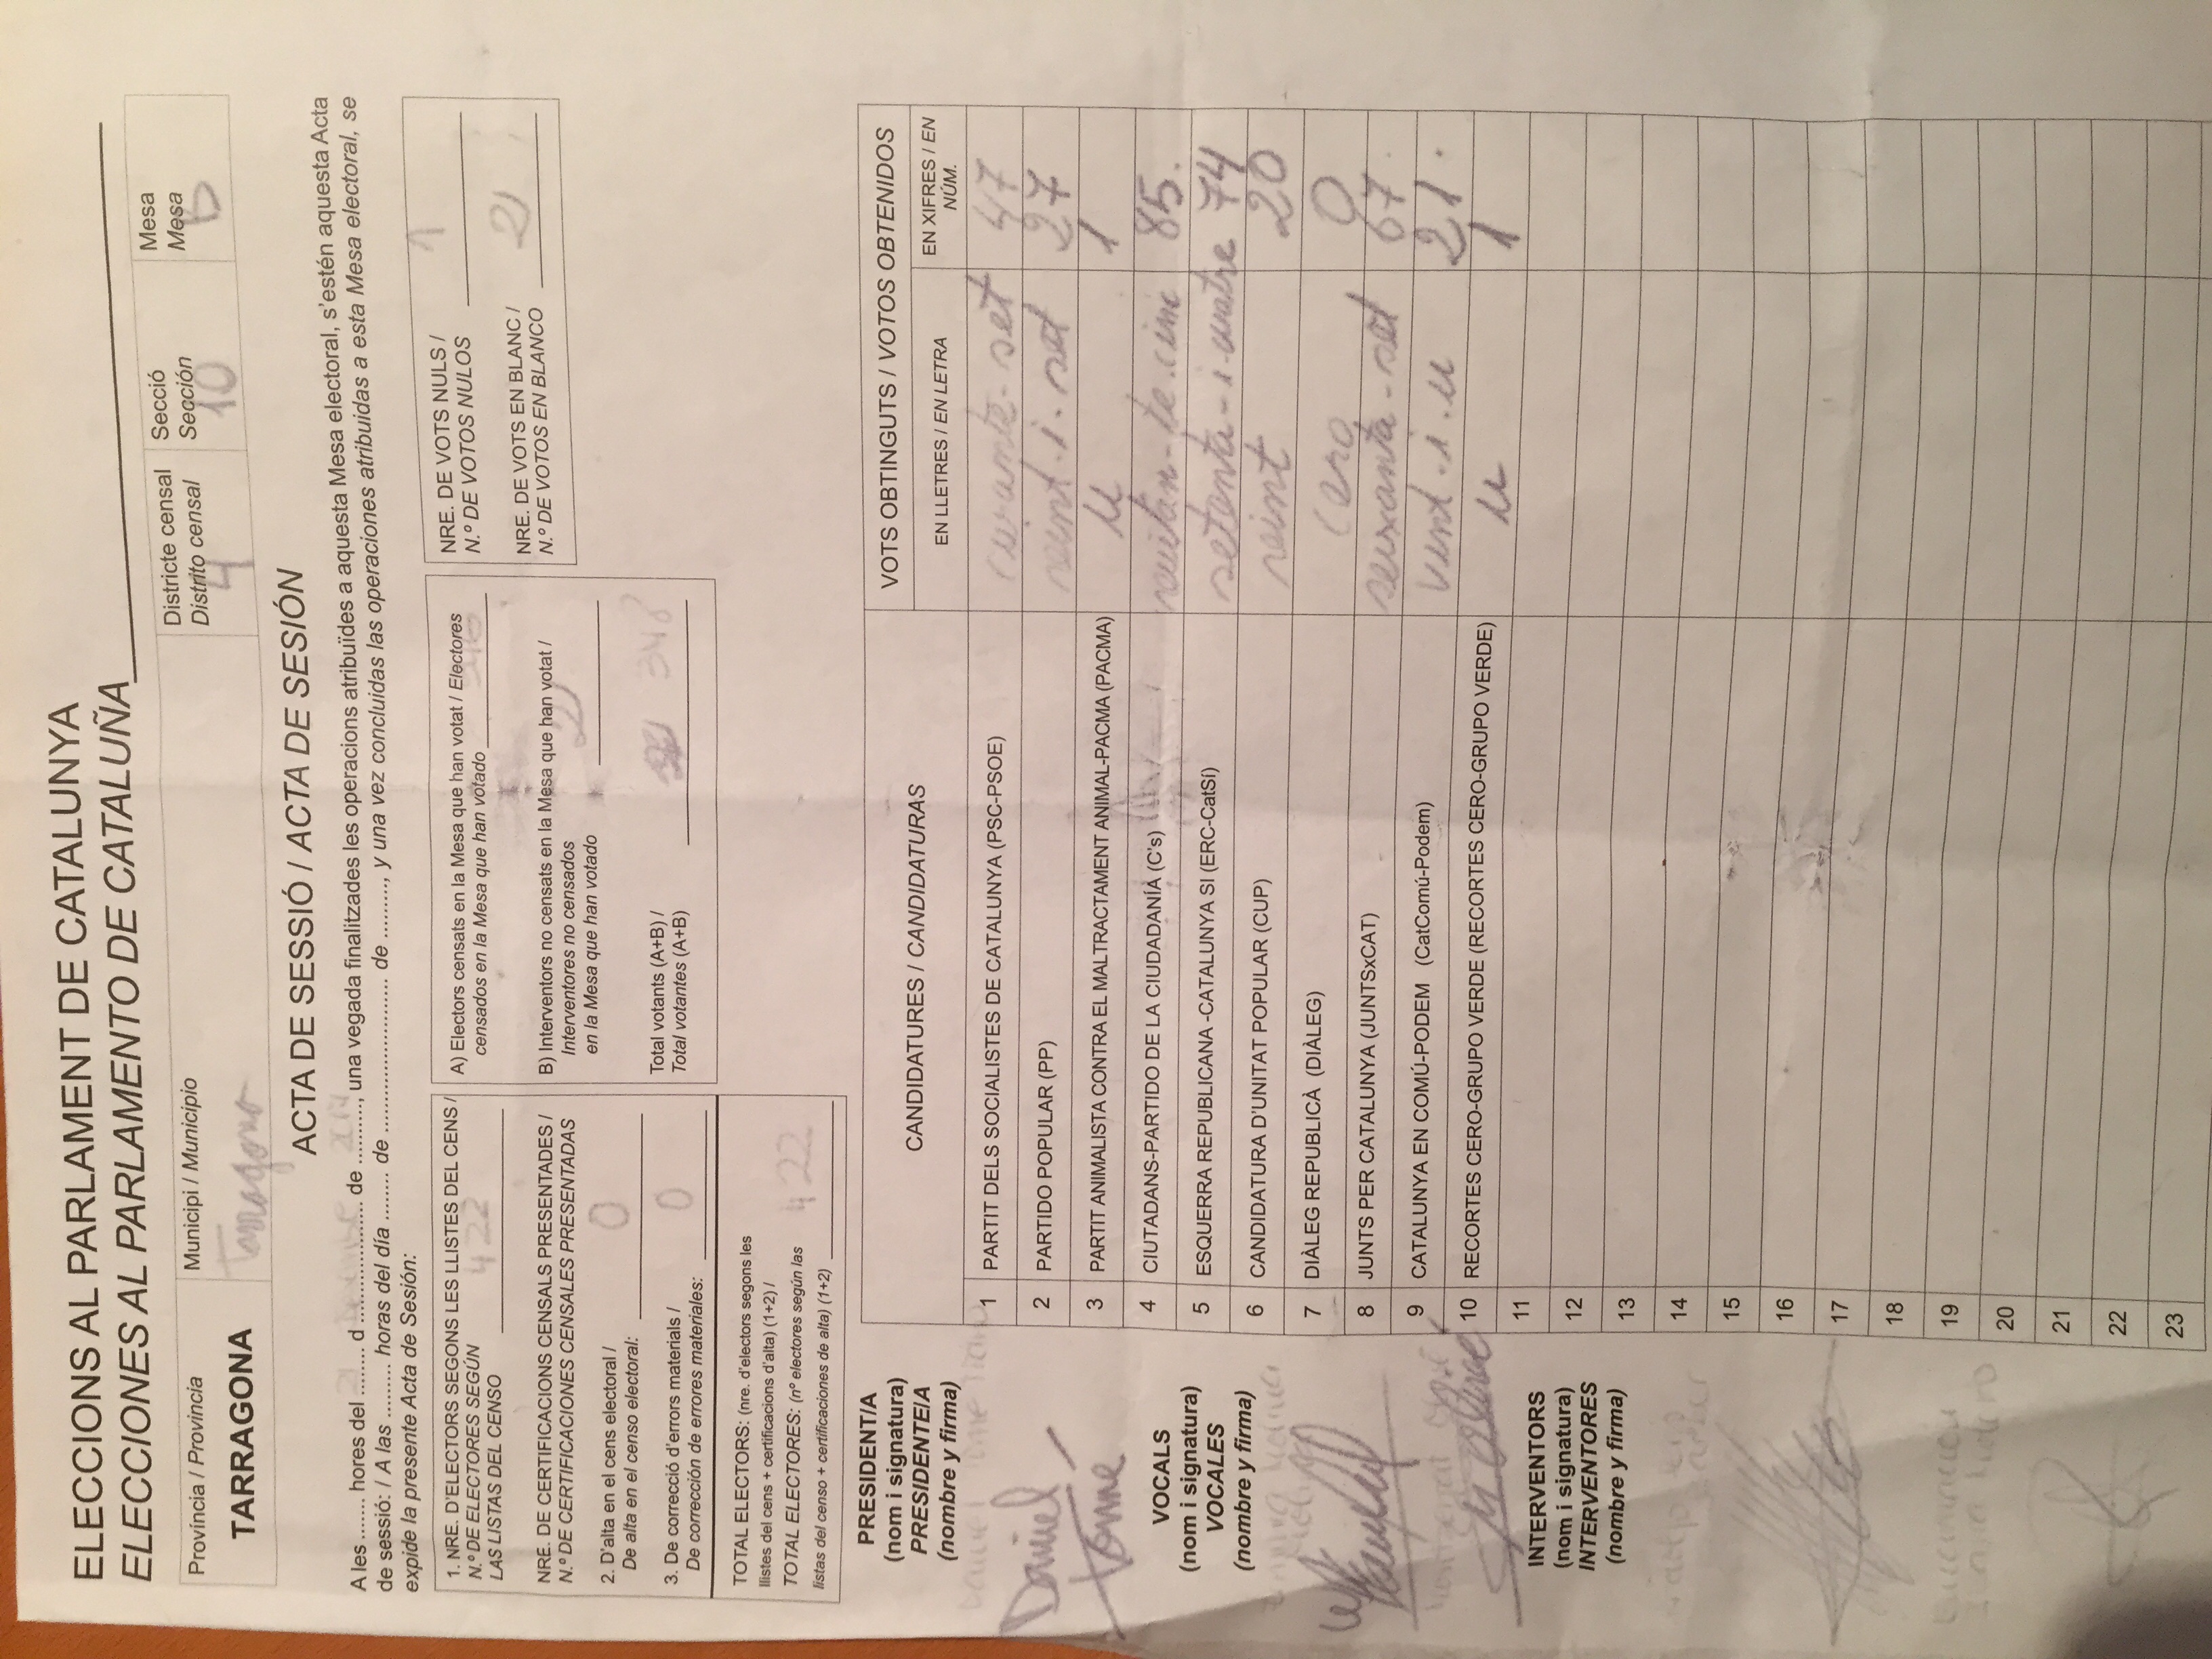 ELECCIONS AL PARLAMENT DE CATALUNYA
ELECCIONES AL PARLAMENTO DE CATALUÑA
Província / Provincia
TARRAGONA
Municipi / Municipio
Tarragona
Districte censal
Distrito censal
4
Secció
Sección
10
Mesa
Mesa
B
ACTA DE SESSIÓ / ACTA DE SESIÓN
A les ....... hores del 21 d Desembre de 2017, una vegada finalitzades les operacions atribuïdes a aquesta Mesa electoral, s'estén aquesta Acta
de sessió: / A las ......... horas del día ........ de .......................... de ........., y una vez concluidas las operaciones atribuidas a esta Mesa electoral, se
expide la presente Acta de Sesión:
1. NRE. D'ELECTORS SEGONS LES LLISTES DEL CENS /
N.º DE ELECTORES SEGÚN
LAS LISTAS DEL CENSO 422
NRE. DE CERTIFICACIONS CENSALS PRESENTADES /
N.º DE CERTIFICACIONES CENSALES PRESENTADAS
2. D'alta en el cens electoral /
De alta en el censo electoral: 0
3. De correcció d'errors materials /
De corrección de errores materiales: 0
TOTAL ELECTORS: (nre. d'electors segons les
llistes del cens + certificacions d'alta) (1+2) /
TOTAL ELECTORES: (nº electores según las
listas del censo + certificaciones de alta) (1+2) 422
A) Electors censats en la Mesa que han votat / Electores
censados en la Mesa que han votado 346
B) Interventors no censats en la Mesa que han votat /
Interventores no censados
en la Mesa que han votado 2
Total votants (A+B) /
Total votantes (A+B) 348
NRE. DE VOTS NULS /
N.º DE VOTOS NULOS 1
NRE. DE VOTS EN BLANC /
N.º DE VOTOS EN BLANCO 2
PRESIDENT/A
(nom i signatura)
PRESIDENTE/A
(nombre y firma)
Daniel Tomé
Daniel
Tomé
VOCALS
(nom i signatura)
VOCALES
(nombre y firma)
Molina
Montserrat
INTERVENTORS
(nom i signatura)
INTERVENTORES
(nombre y firma)
CANDIDATURES / CANDIDATURAS
VOTS OBTINGUTS / VOTOS OBTENIDOS
EN LLETRES / EN LETRA
EN XIFRES / EN
NÚM.
1 PARTIT DELS SOCIALISTES DE CATALUNYA (PSC-PSOE) curante-set 47
2 PARTIDO POPULAR (PP) veint-i-set 27
3 PARTIT ANIMALISTA CONTRA EL MALTRACTAMENT ANIMAL-PACMA (PACMA) u 1
4 CIUTADANS-PARTIDO DE LA CIUDADANÍA (C's) 85.
5 ESQUERRA REPUBLICANA -CATALUNYA SI (ERC-CatSí) setanta-i-cuatre 74
6 CANDIDATURA D'UNITAT POPULAR (CUP) veint 20
7 DIÀLEG REPUBLICÀ (DIÀLEG) cero 0
8 JUNTS PER CATALUNYA (JUNTSxCAT) seixanta-set 67
9 CATALUNYA EN COMÚ-PODEM (CatComú-Podem) vint-i-u 21
10 RECORTES CERO-GRUPO VERDE (RECORTES CERO-GRUPO VERDE) u 1
11
12
13
14
15
16
17
18
19
20
21
22
23